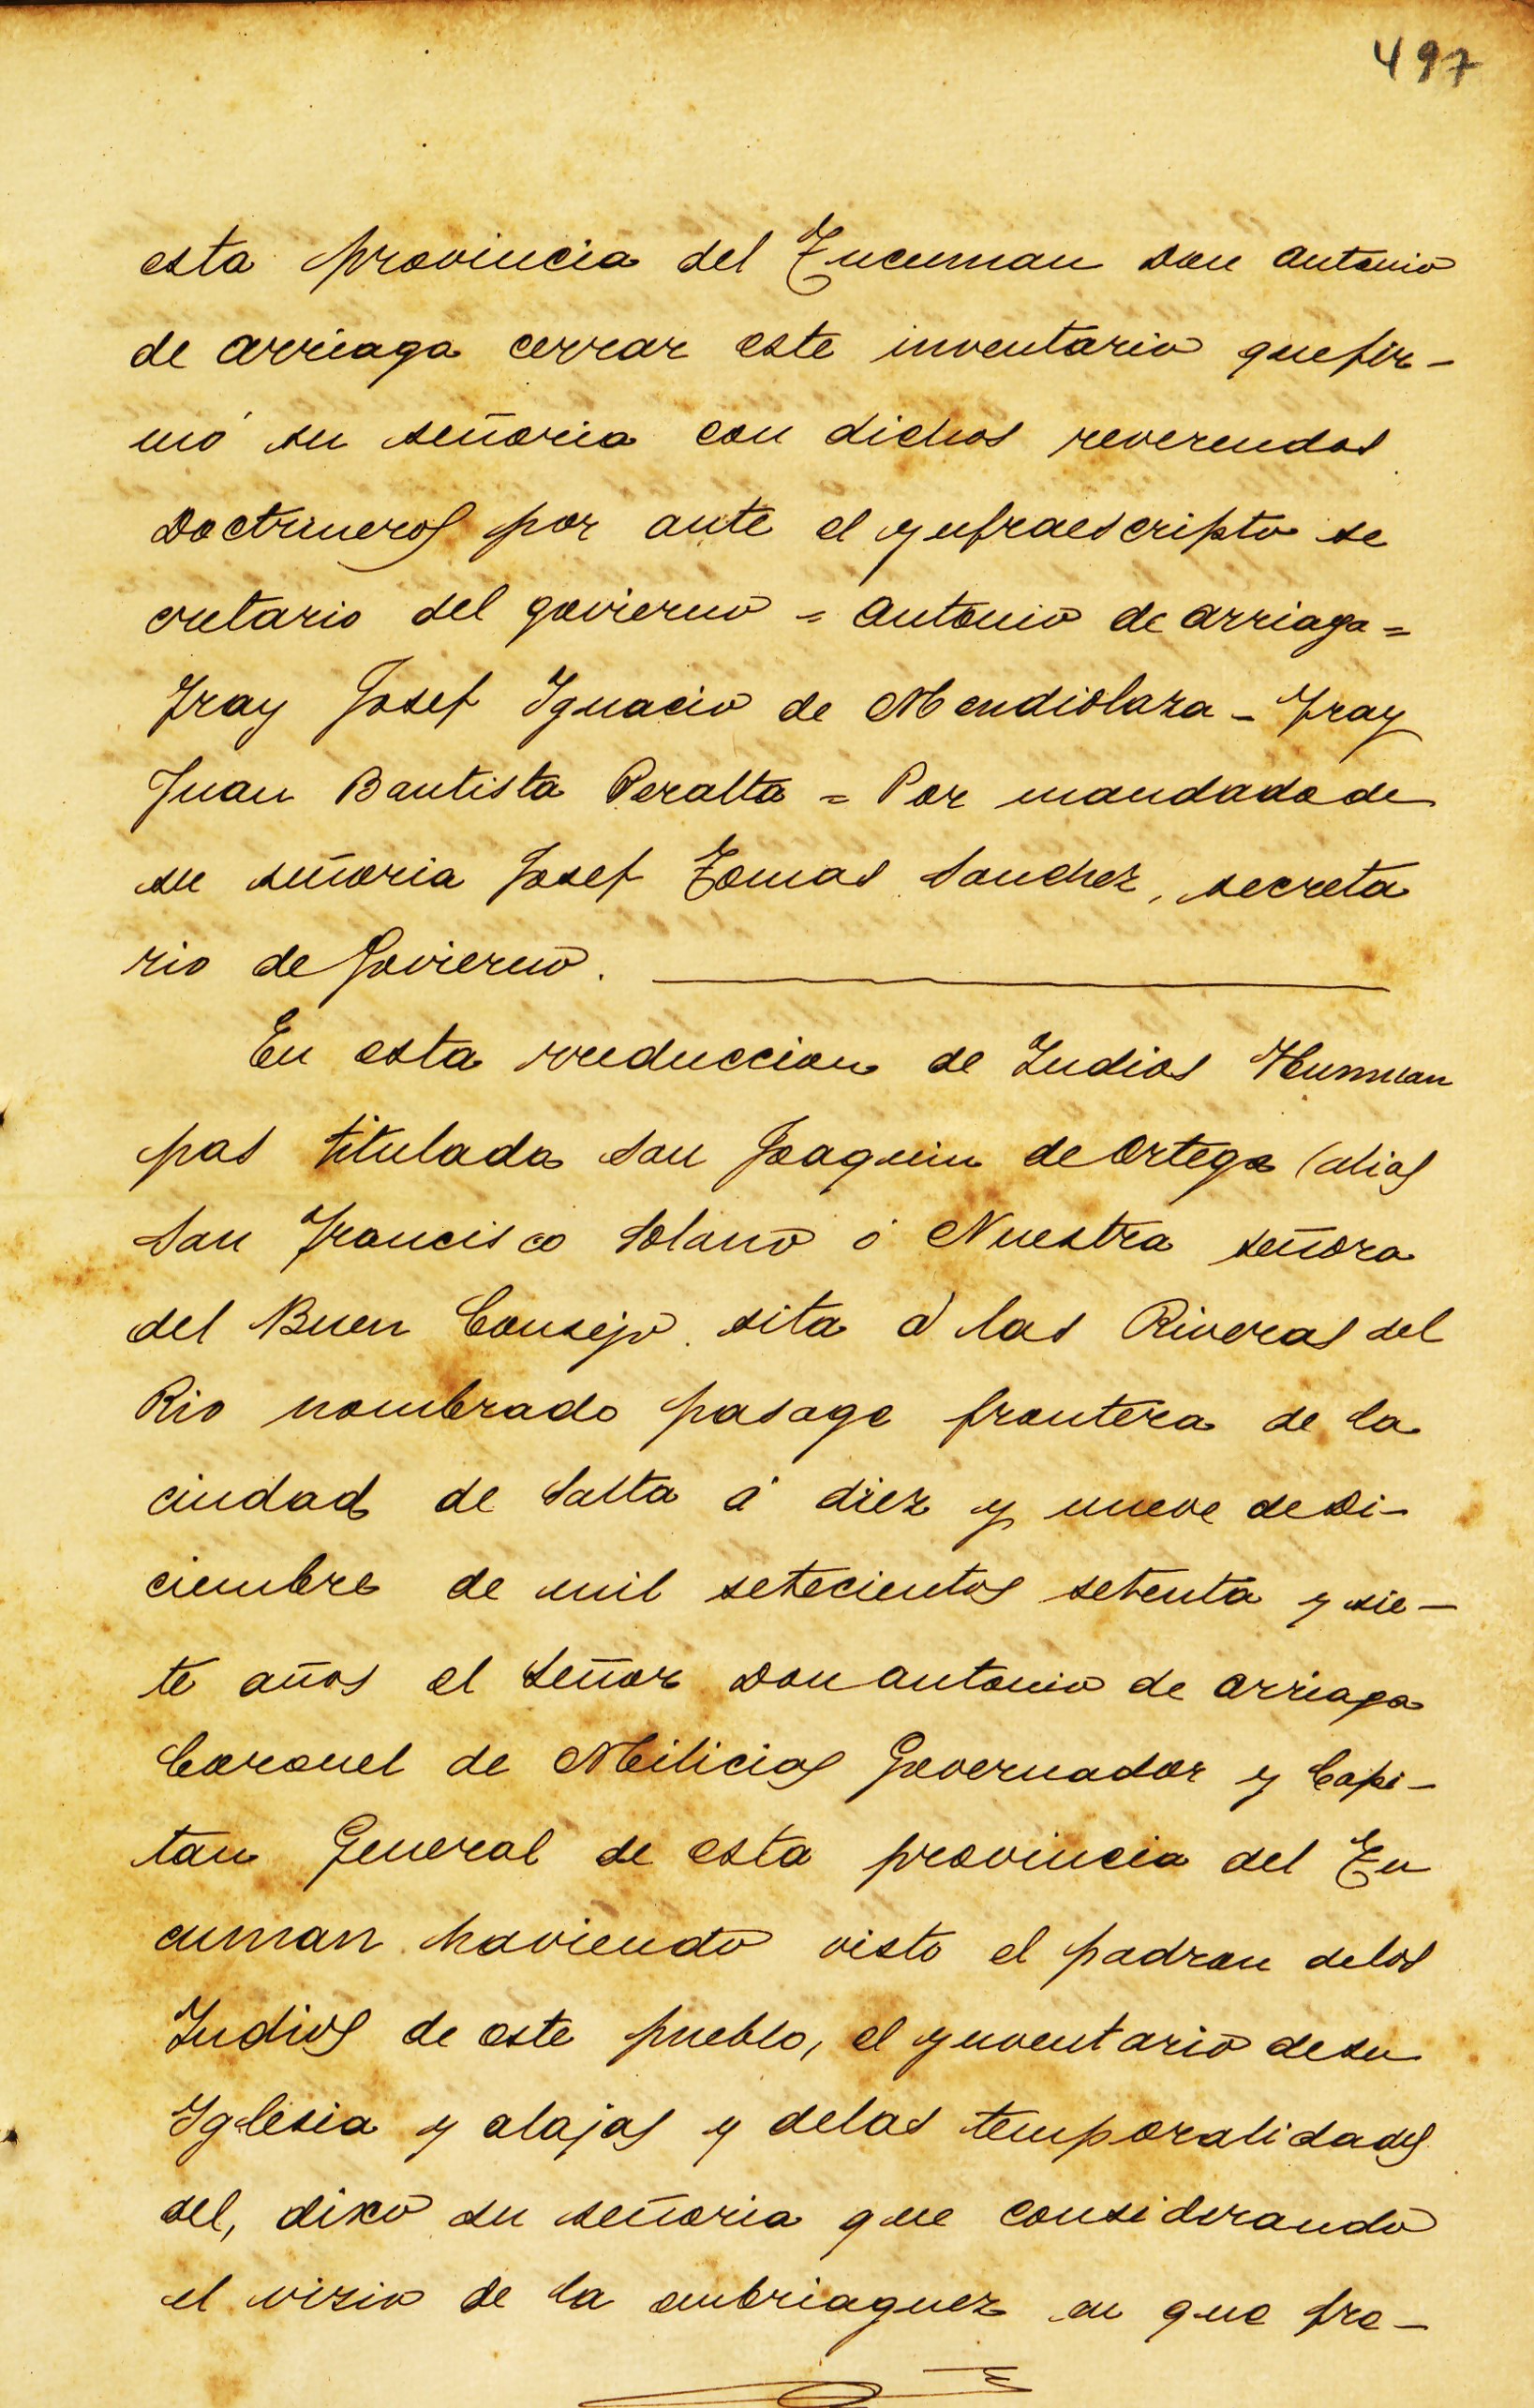 497
esta provincia del Tucuman Don Antonio
de Arriaga cerrar este inventario quefir-
mó su señoria con dichos reverendos
Doctrineros por ante el ynfraescripto se
cretario del govierno = Antonio de Arriaga =
Fray Josef Ignacio de Mendiolaza - Fray
Juan Bautista Peralta = Por mandado de
su señoria Josef Tomas Sanchez, secreta
rio de Govierno.
En esta rreduccion de Indios Humuam
pas titulada San Joaquin de Ortega (alias
San Francisco Solano ó Nuestra señora
del Buen Consejo sita á las Riveras del
Rio nombrado pasage frontera de la
ciudad de Salta á diez y nueve de Di-
ciembre de mil setecientos setenta y sie-
te años el Señor Don Antonio de Arriaga
Coronel de Milicias Governador y Capi-
tan General de esta provincia del Tu
cuman haviendo visto el padron delos
Indios de este pueblo, el ynventario desu
Iglesia y alajas y delas temporalidades
del, dixo su señoria que considerando
el vizio de la embriaguez en que fre-